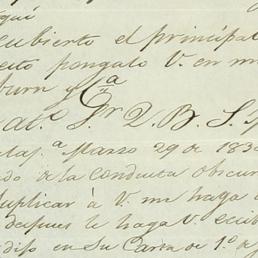 aquí
cubierto el principal
esto pongalo V. en m
burn y Cª
at.º S. Sr. D. B. S.
Marzo 29 de 183
do de la conducta obscur
suplicar à V. me haga
despues le haga V. ecib
dijo en Su Carta de 1.º de